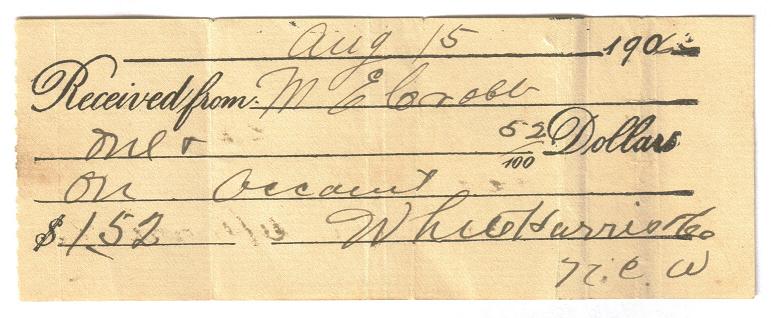 Aug 15 190
Received from M E Crabb
One & 52/100 Dollars
on account
$ 1.52 White Harris & Co
N. C. W